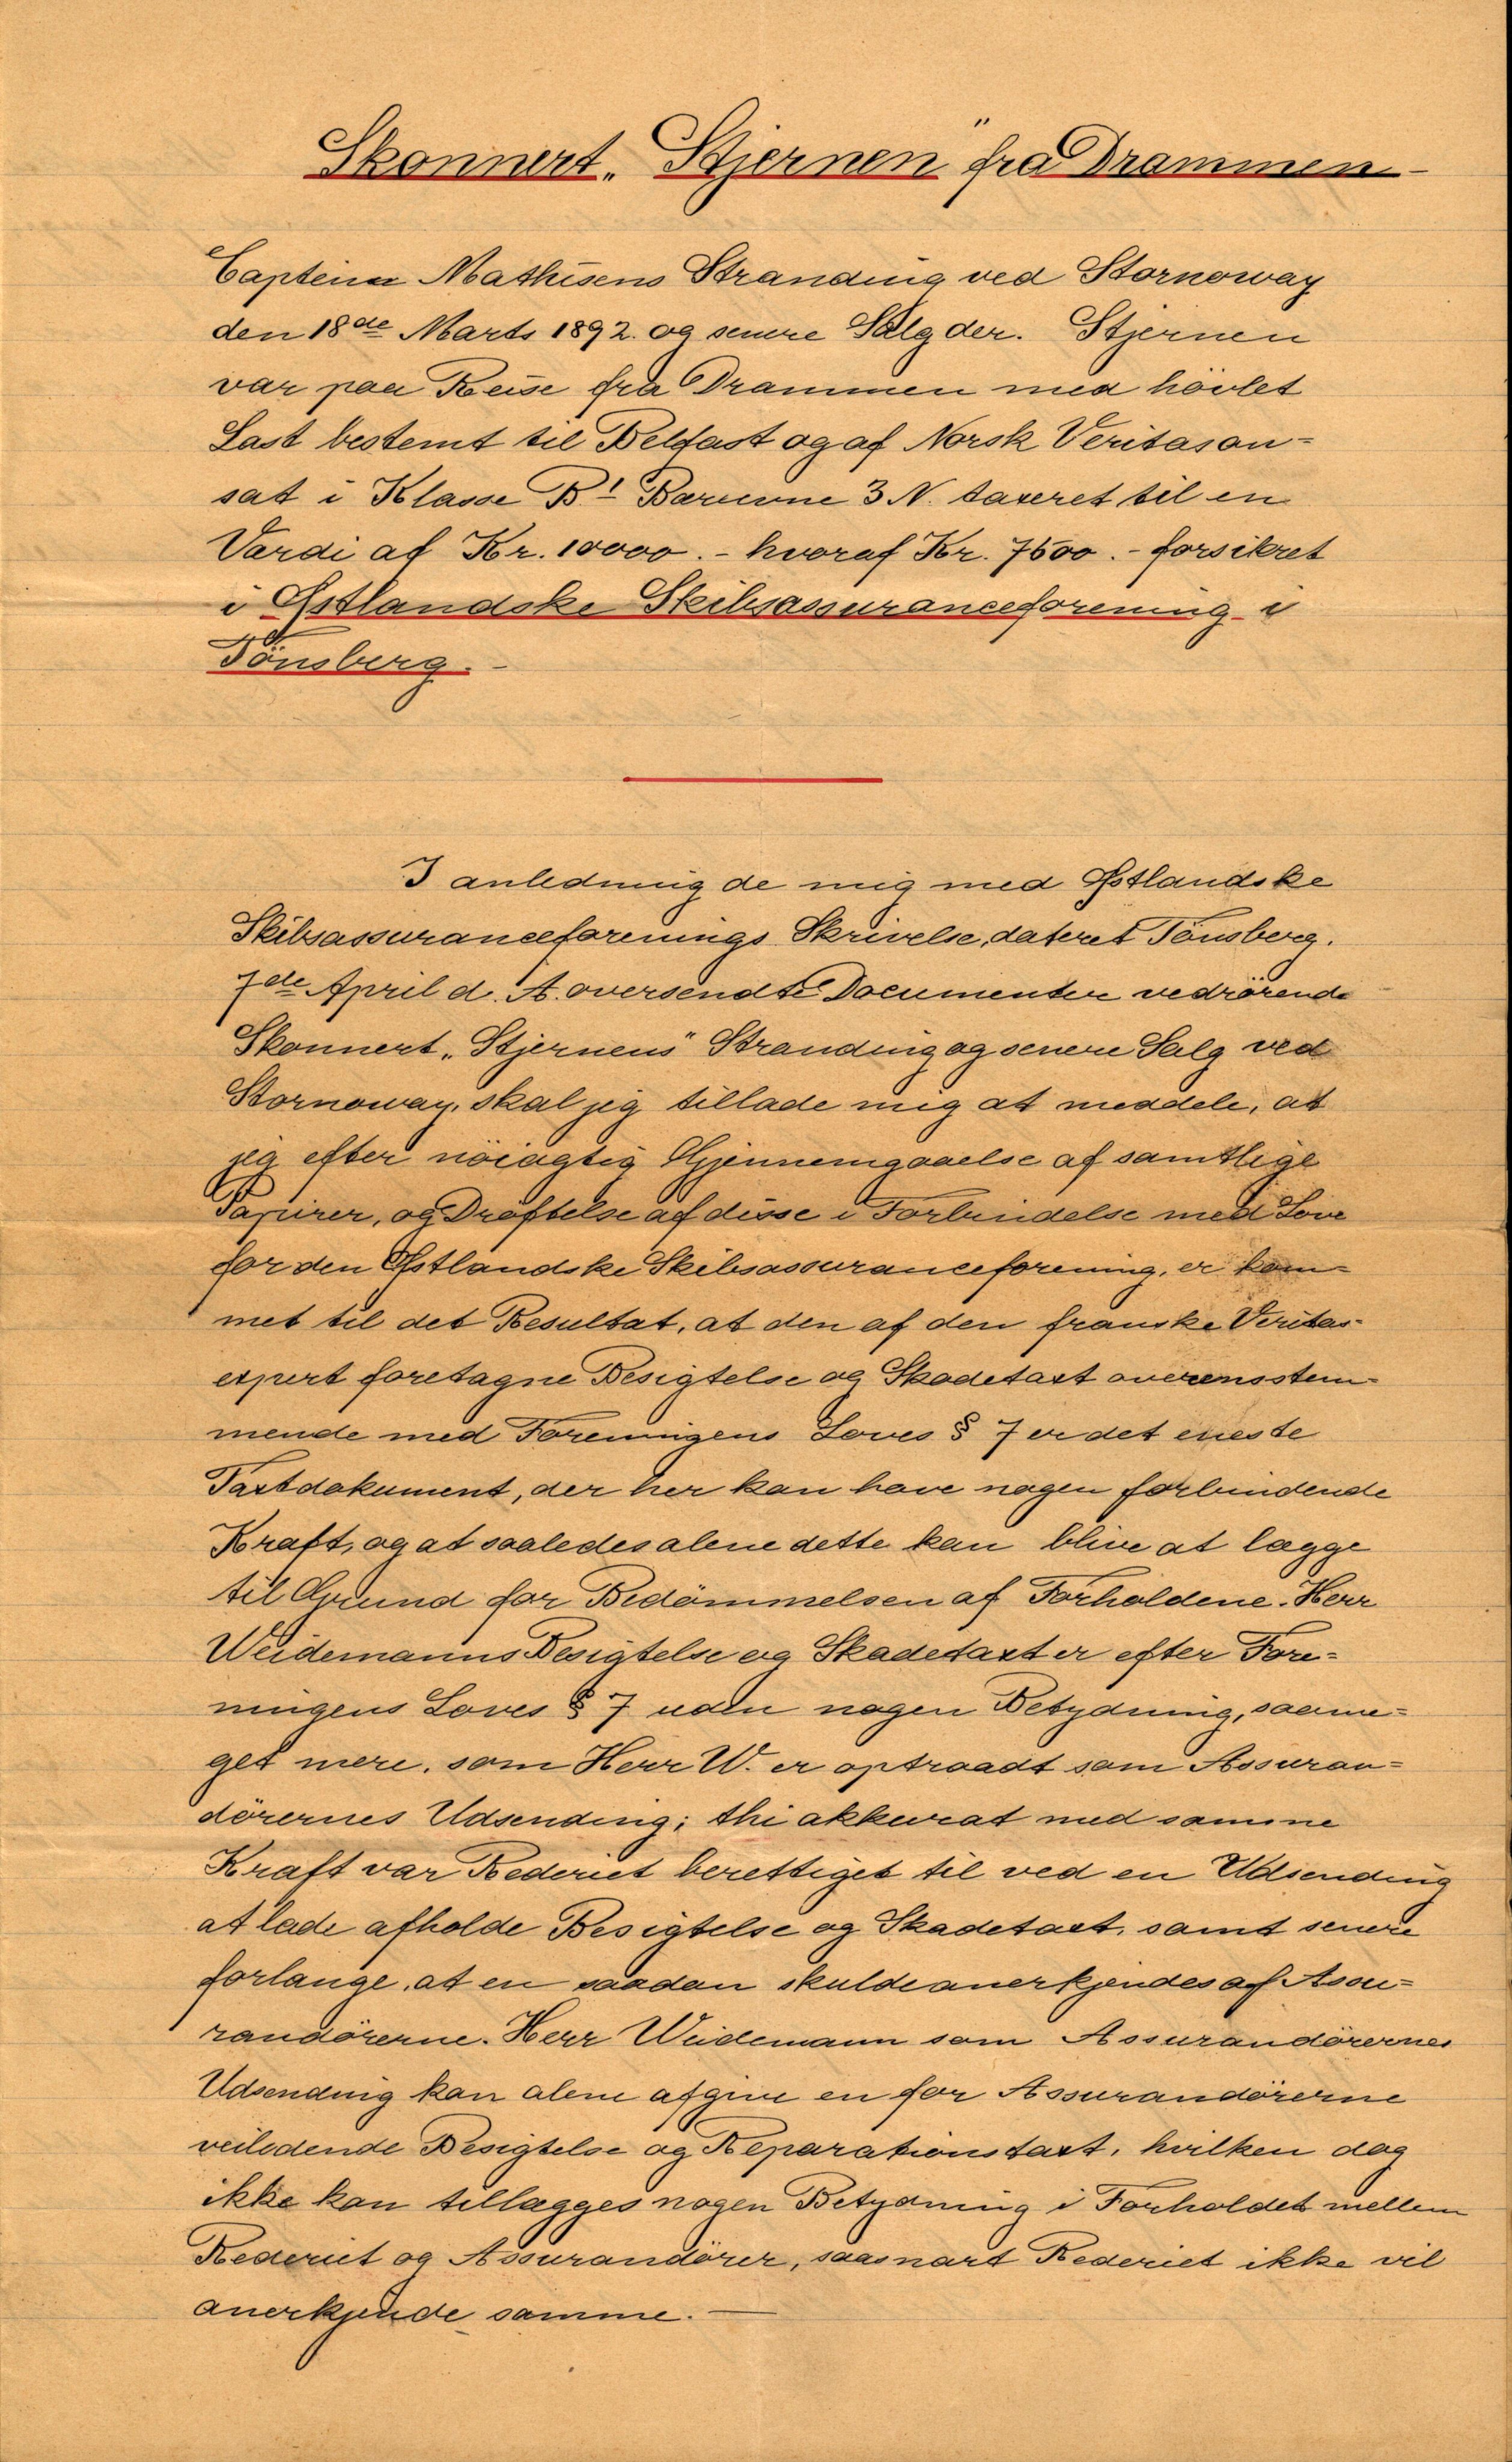 Skonnert „Stjernen" fra Drammen
Captein Mathisens Stranding ved Stornoway
den 18de Marts 1892. og senere Salg der. Stjernen
var paa Reise fra Drammen med hövlet
Last bestemt til Belfast og af Norsk Veritas an-
sat i Klasse B1 Bareevne 3 N. taxeret til en
Værdi af Kr. 10000.- hvoraf Kr. 7500.- forsikret
i Østlandske Skibsassuranceforening i
Tönsberg.-
I anledning de mig med Østlandske
Skibsassuranceforenings Skrivelse, dateret Tönsberg.
7de April d. A. oversendte Documenter vedrörende
Skonnert „Stjernens" Stranding og senere Salg ved
Stornoway, skal jeg tillade mig at meddele, at
jeg efter nöiagtig Gjennemgaaelse af samtlige
Papirer, og Dröftelse af disse i Forbindelse med Love
for den Østlandske Skibsassuranceforening, er kom=
met til det Resultat, at den af den franske Veritas-
expert foretagne Besigtelse og Skadetaxt overensstem-
mende med Foreningens Loves § 7 er det eneste
Taxtdokument, der her kan have nogen forbindende
Kraft, og at saaledes alene dette kan blive at lægge
til Grund for Bedömmelsen af Forholdene. Herr
Weidemanns Besigtelse og Skadetaxt er efter Fore=
ningens Loves § 7 uden nogen Betydning, saame=
get mere, som Herr W. er optraadt som Assuran=
dörernes Udsending; thi akkurat med samme
Kraft var Rederiet berettiget til ved en Udsending
at lade afholde Besigtelse og Skadetaxt, samt senere
forlange, at en saadan skulde anerkjendes af Assu=
randörerne. Herr Weidemann som Assurandörernes
Udsending kan alene afgive en for Assurandörerne
veiledende Besigtelse og Reparationstaxt, hvilken dog
ikke kan tillægges nogen Betydning i Forholdet mellem
Rederiet og Assurandörer, saasnart Rederiet ikke vil
anerkjende samme.-